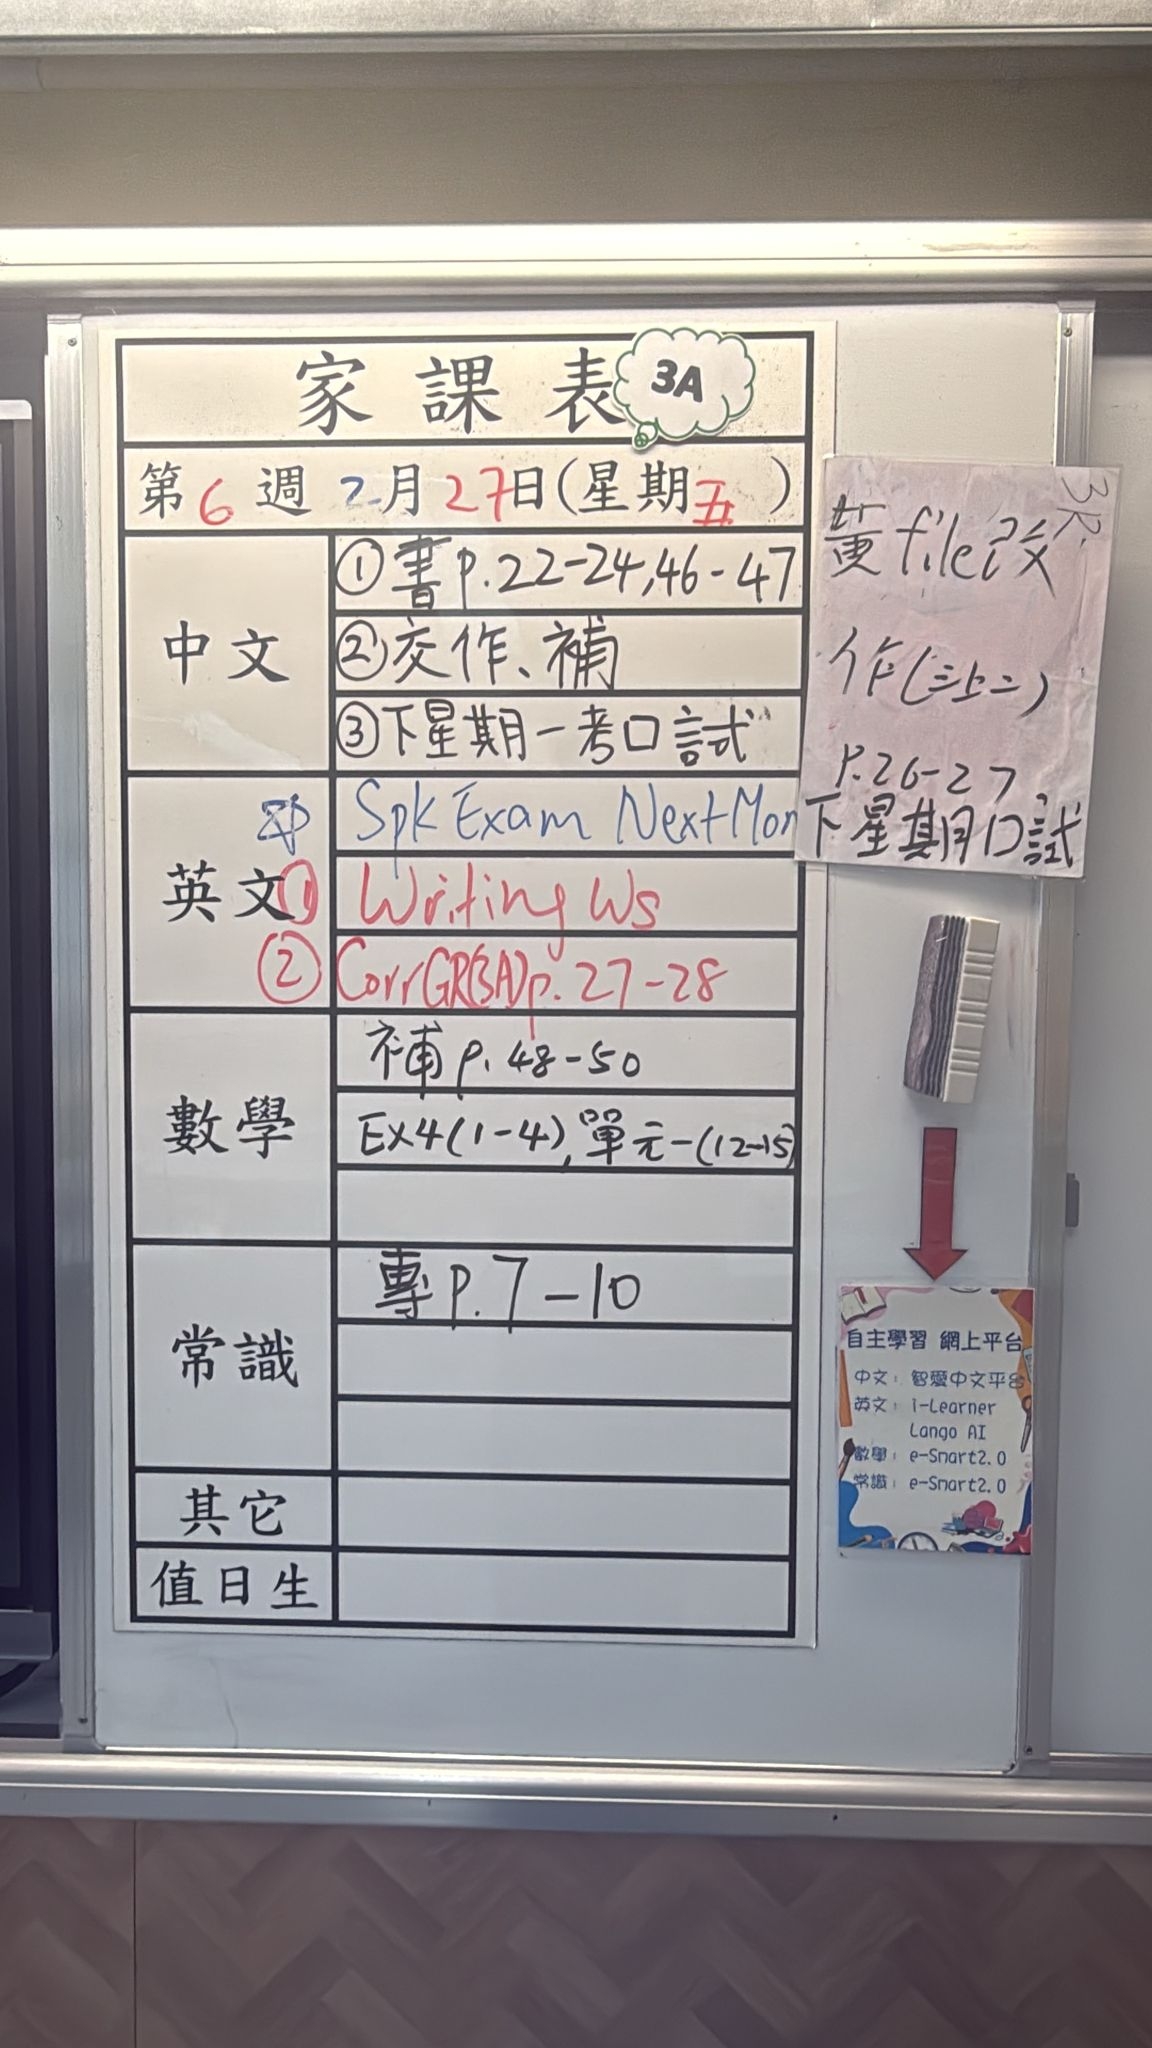 家課表 3A
第6週 2月27日(星期五)
中文
①書p.22-24,46-47
②交作、補
③下星期一考口試
英文
Spk Exam Next Mon
① Writing Ws
② Corr GR(3A)p.27-28
數學
補p.48-50
Ex4(1-4),單元一(12-15)
常識
專p.7-10
其它
值日生
3R.
黃file改
作(三上二)
P.26-27
下星期口試
自主學習 網上平台
中文：智愛中文平台
英文：i-Learner
Lango AI
數學：e-Smart2.0
常識：e-Smart2.0